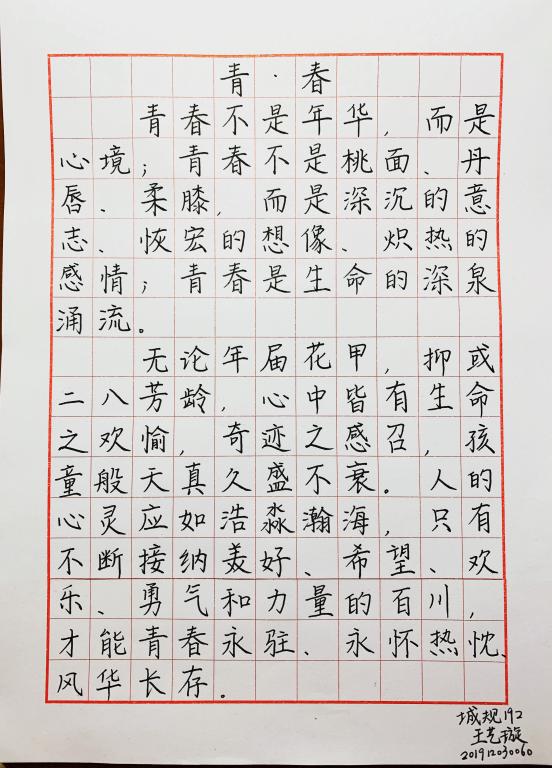 青·春
青春不是年华，而是
心境；青春不是桃面、丹
唇、柔膝，而是深沉的意
志、恢宏的想像、炽热的
感情；青春是生命的深泉
涌流。
无论年届花甲，抑或
二八芳龄，心中皆有生命
之欢愉，奇迹之感召，孩
童般天真久盛不衰。人的
心灵应如浩淼瀚海，只有
不断接纳美好、希望、欢
乐、勇气和力量的百川，
才能青春永驻、永怀热忱、
风华长存。
城规192
王艺璇
201912030060